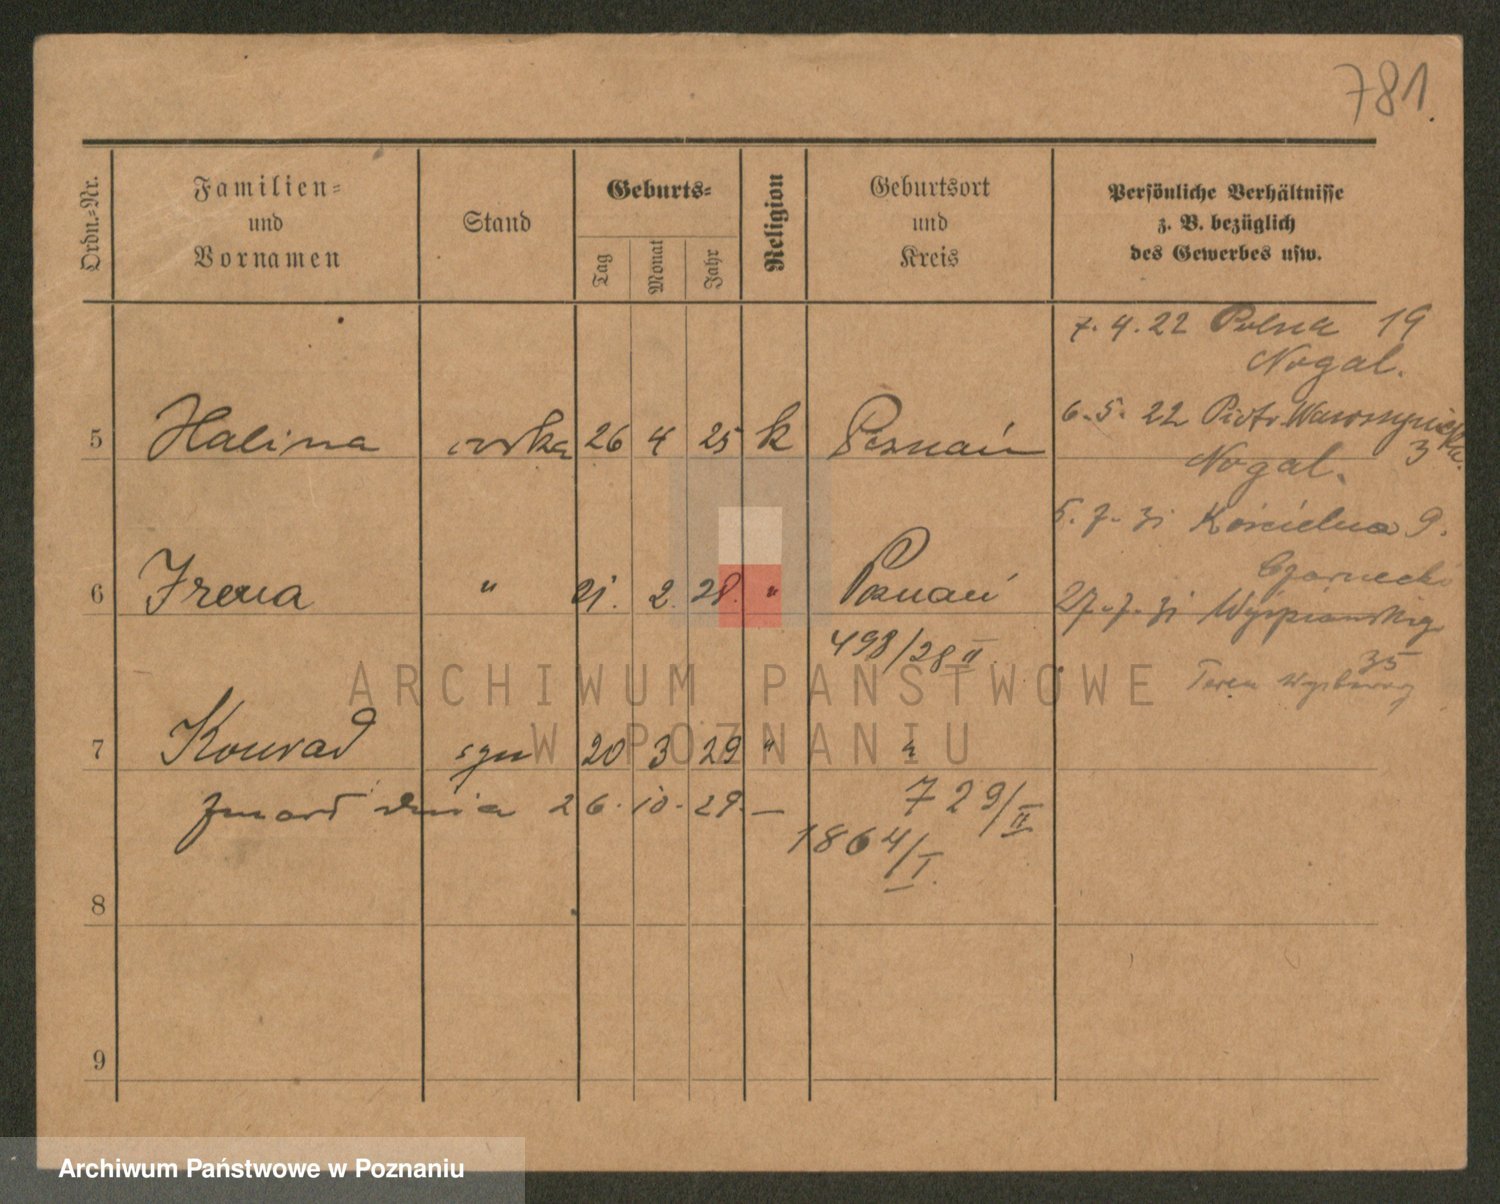 781.
Ordn.-Nr.
Familien-
und
Vornamen
Stand
Geburts-
Tag
Monat
Jahr
Religion
Geburtsort
und
Kreis
Persönliche Verhältnisse
z. B. bezüglich
des Gewerbes usw.
7. 4. 22 Polna 19
Nogal.
6. 5. 22 Piotr Wawrzyniaka 3
Nogal.
5 Halina córka 26 4 25 k Poznań
5. 7. 31 Kościelna 9.
Czarnecki
6 Irena " 21. 2. 28. " Poznań
27. 7. 31 Wyspiańskiego
35
498/28 II
7 Konrad syn 20 3 29 " "
zmarł dnia 26. 10. 29. —
729/II
1864/I.
8
9
ARCHIWUM PAŃSTWOWE
W POZNANIU
Archiwum Państwowe w Poznaniu